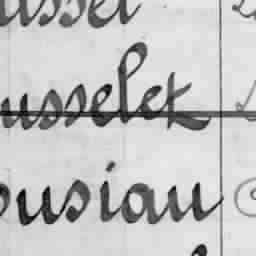 usset
usselet
ousiau